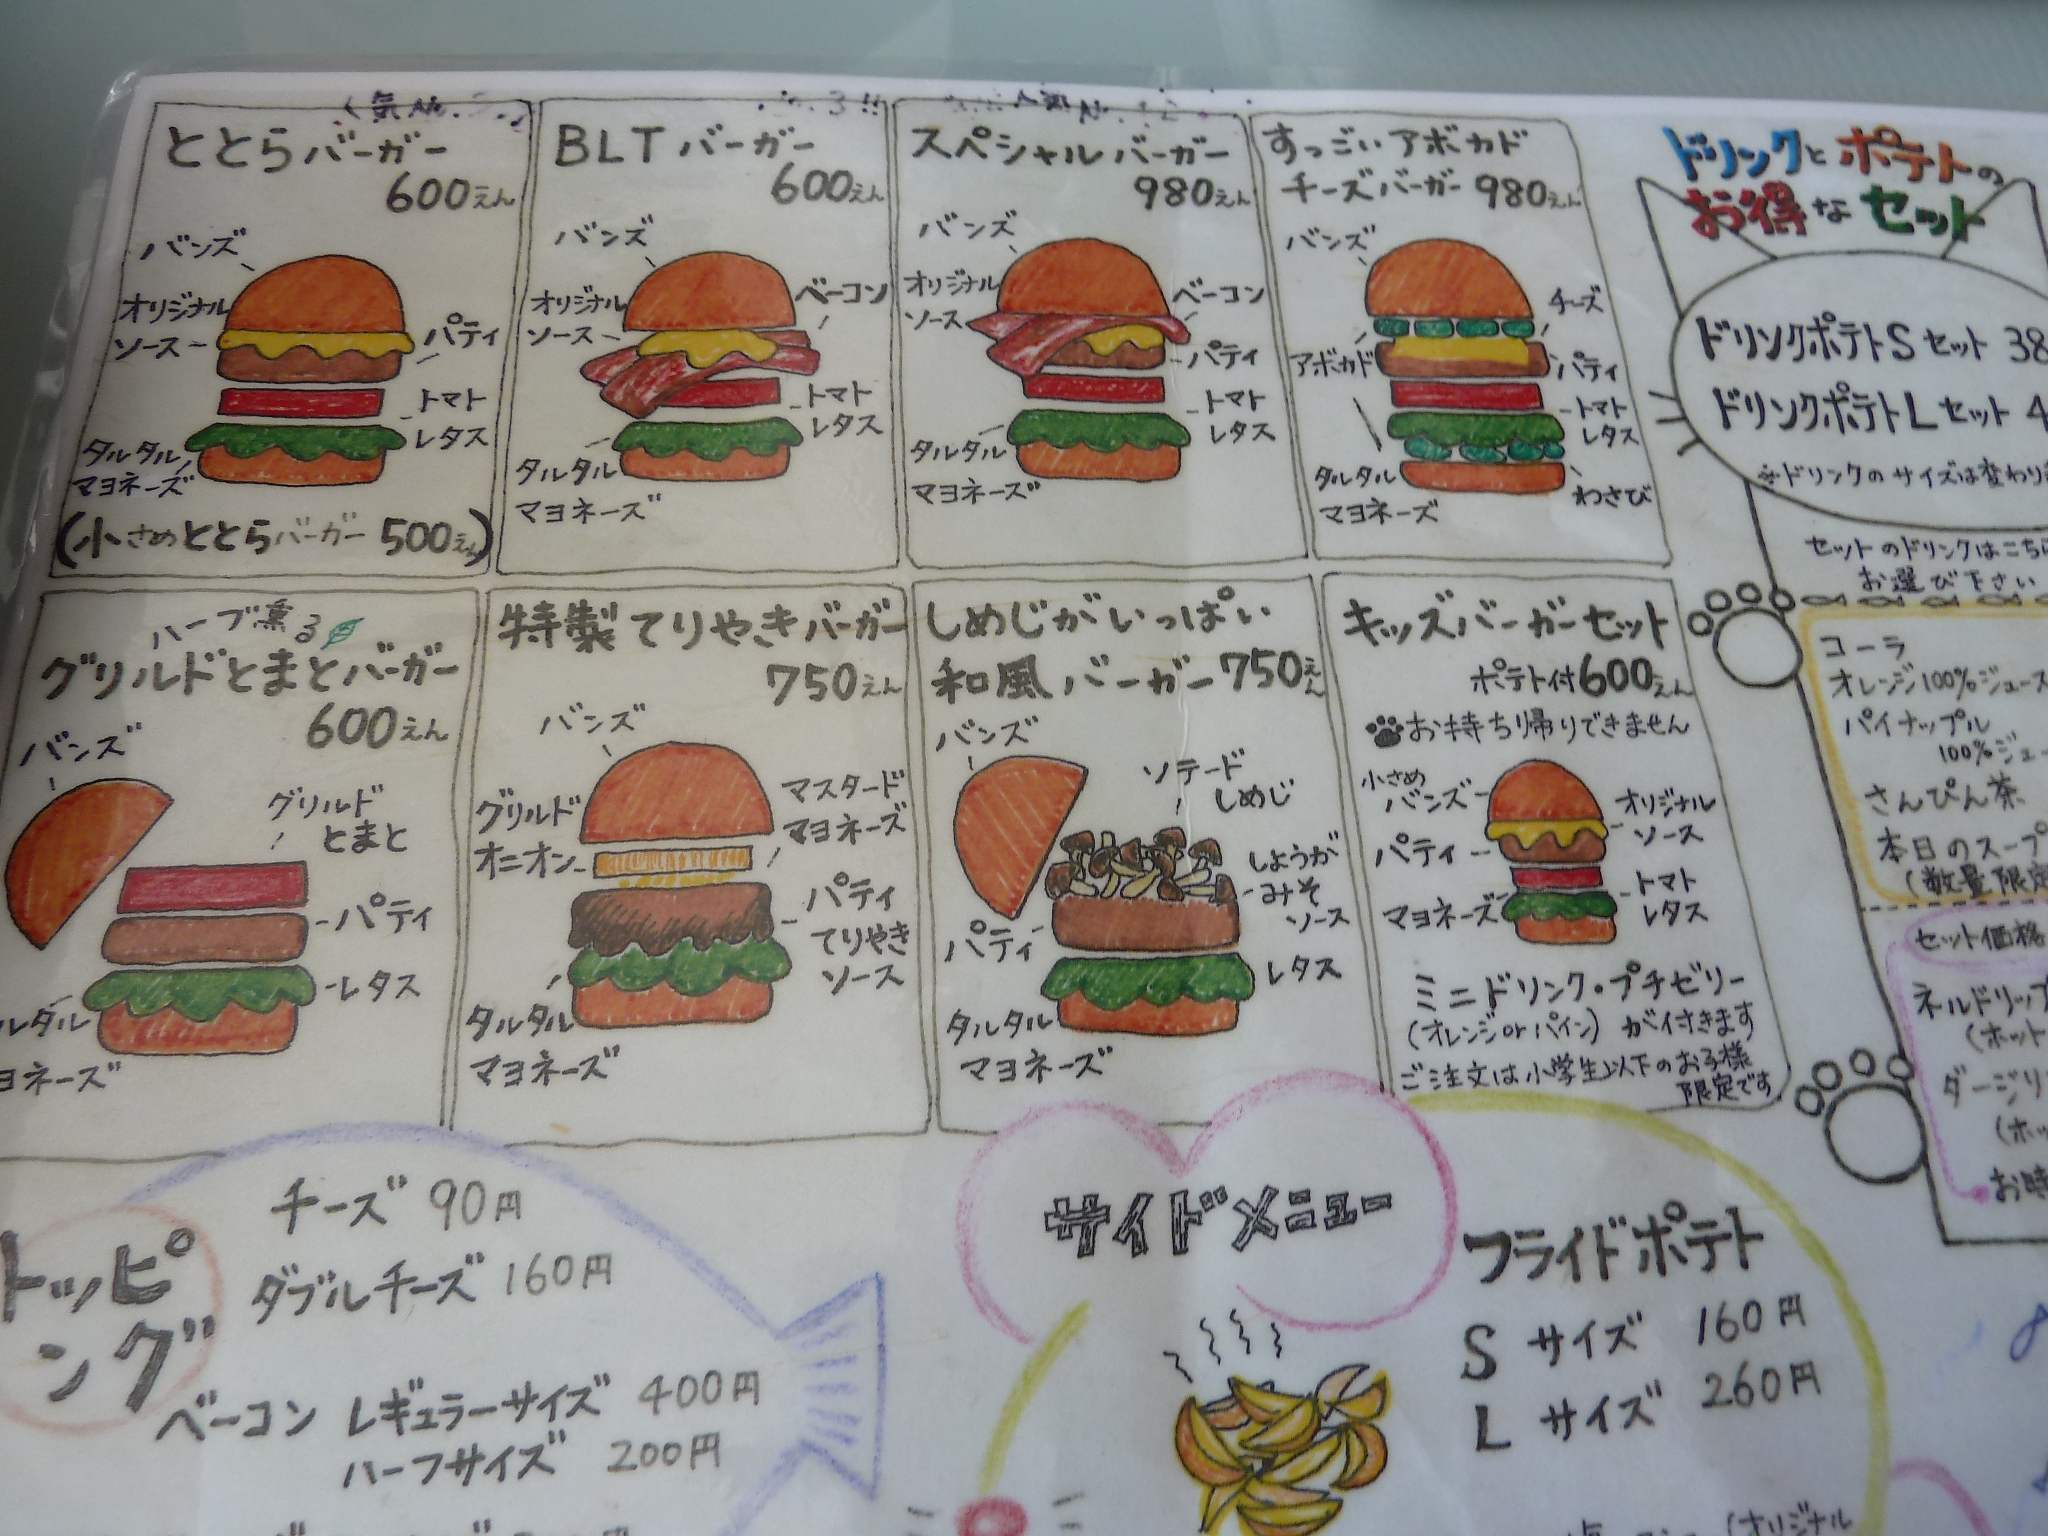 ととらバーガー
600えん
バンズ
オリジナル
ソース
パティ
トマト
レタス
タルタル
マヨネーズ
(小さめととらバーガー 500えん)
BLTバーガー
600えん
バンズ
オリジナル
ソース
ベーコン
トマト
レタス
タルタル
マヨネーズ
スペシャルバーガー
980えん
バンズ
オリジナル
ソース
ベーコン
パティ
トマト
レタス
タルタル
マヨネーズ
すっごいアボカド
チーズバーガー 980えん
バンズ
チーズ
アボカド
パティ
トマト
レタス
タルタル
マヨネーズ
わさび
ドリンクとポテトの
お得なセット
ドリンクポテトSセット 38
ドリンクポテトLセット 4
※ドリンクのサイズは変わり
セットのドリンクはこちら
お選び下さい
コーラ
オレンジ100%ジュース
パイナップル
100%ジュー
さんぴん茶
本日のスープ
(数量限定
セット価格
ネルドリップ
(ホット
ダージリ
(ホッ
お時
ハーブ薫る
グリルドとまとバーガー
600えん
バンズ
グリルド
とまと
パティ
レタス
ルタル
ヨネーズ
特製てりやきバーガー
750えん
バンズ
グリルド
オニオン
マスタード
マヨネーズ
パティ
てりやき
ソース
タルタル
マヨネーズ
しめじがいっぱい
和風バーガー750えん
バンズ
ソテード
しめじ
しょうが
みそ
ソース
パティ
レタス
タルタル
マヨネーズ
キッズバーガーセット
ポテト付600えん
お持ち帰りできません
小さめ
バンズ
オリジナル
ソース
パティ
トマト
レタス
マヨネーズ
ミニドリンク・プチゼリー
(オレンジorパイン)が付きます
ご注文は小学生以下のお子様
限定です
トッピ
ング
チーズ 90円
ダブルチーズ 160円
ベーコン レギュラーサイズ 400円
ハーフサイズ 200円
サイドメニュー
フライドポテト
S サイズ 160円
L サイズ 260円
(オリジナル